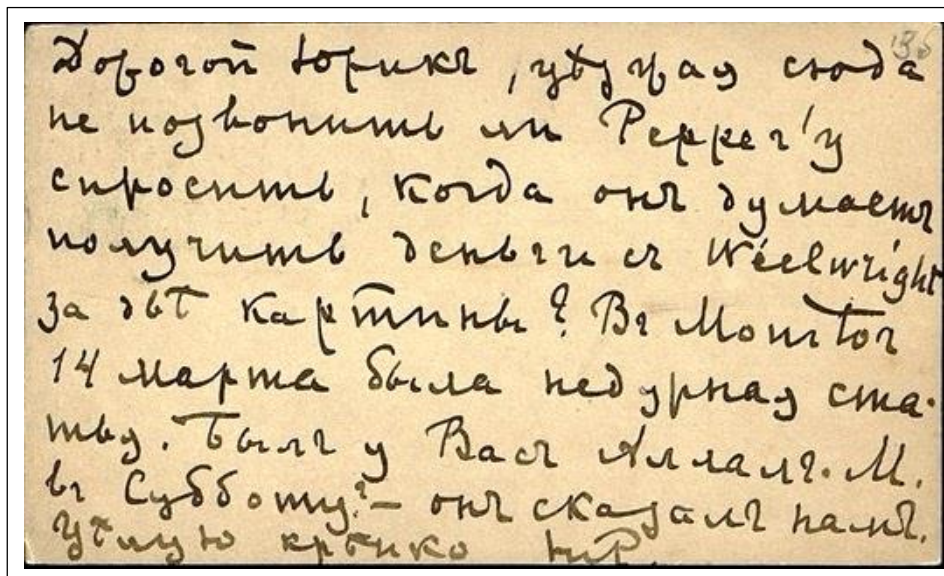 Дорогой Юрикъ, уѣзжая сюда
не позвонить ли Реррег'у
спросить, когда онъ думаетъ
получить деньги съ Weelwright
за двѣ картины? Въ Monitor
14 марта была недурная ста-
тья. Былъ у Васъ М.
въ Субботу? – онъ сказалъ намъ.
Цѣлую крѣпко НР.